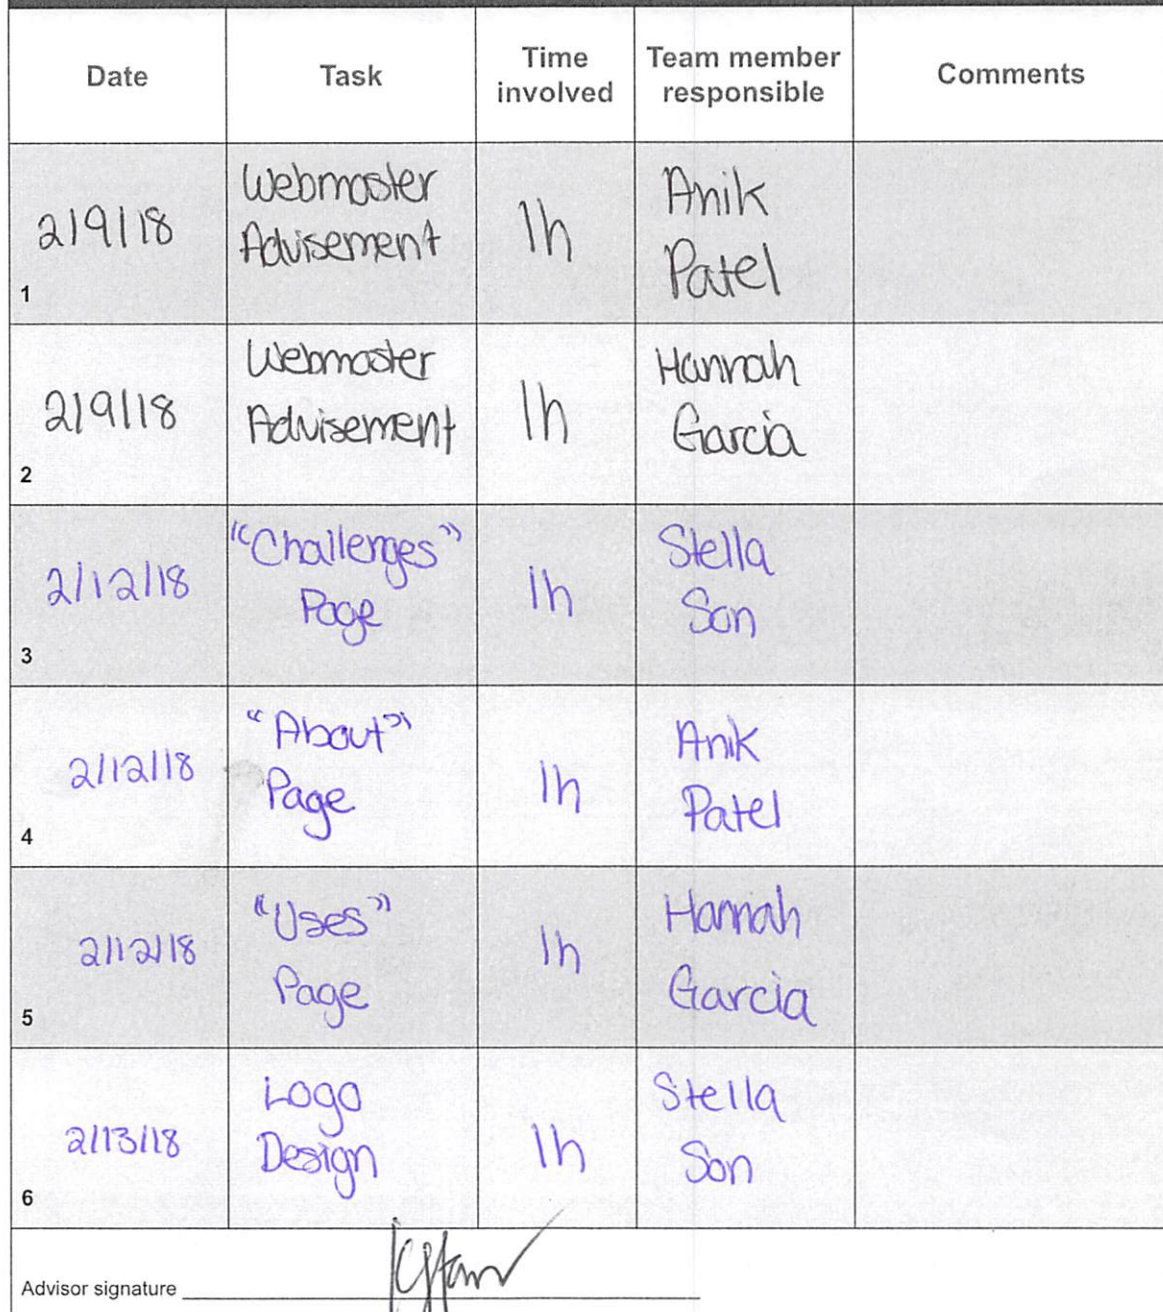 Date Task Time involved Team member responsible Comments
1 2/9/18 Webmaster Advisement 1h Anik Patel
2 2/9/18 Webmaster Advisement 1h Hannah Garcia
3 2/12/18 "Challenges" Page 1h Stella Son
4 2/12/18 "About" Page 1h Anik Patel
5 2/12/18 "Uses" Page 1h Hannah Garcia
6 2/13/18 Logo Design 1h Stella Son
Advisor signature